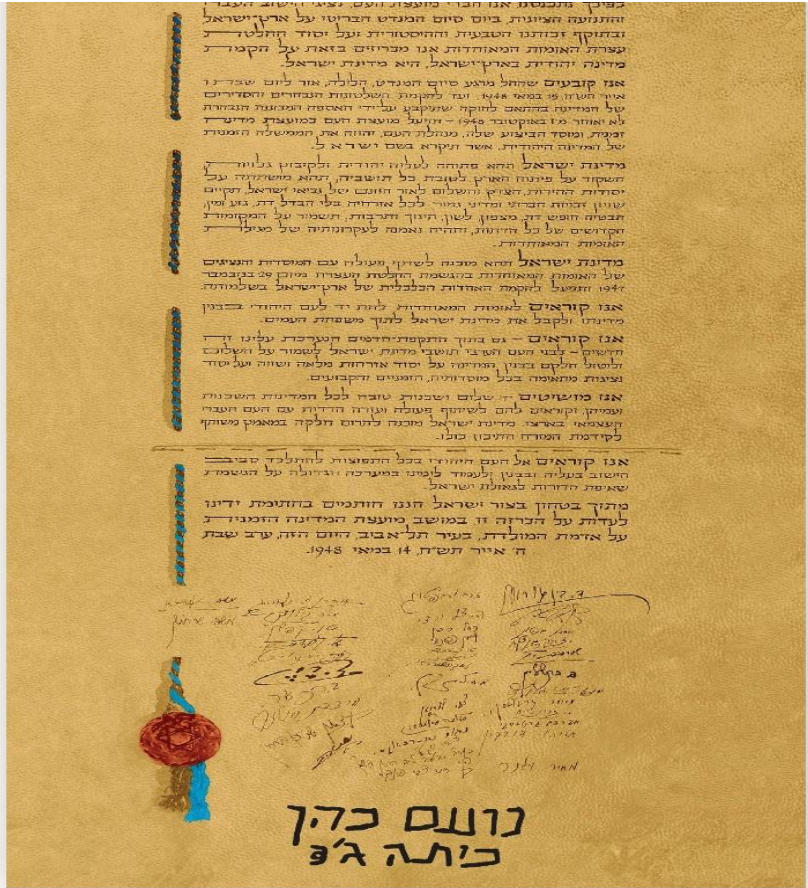 לפיכך נתכנסנו אנו חברי מועצת העם, נציגי הישוב העברי
והתנועה הציונית, ביום סיום המנדט הבריטי על ארץ-ישראל
ובתוקף זכותנו הטבעית וההיסטורית ועל יסוד החלטת
עצרת האומות המאוחדות אנו מכריזים בזאת על הקמת
מדינה יהודית בארץ-ישראל, היא מדינת ישראל.
אנו קובעים שהחל מרגע סיום המנדט, הלילה, אור ליום שבת ו
אייר תש"ח, 15 במאי 1948, ועד להקמת השלטונות הנבחרים והסדירים
של המדינה בהתאם לחוקה שתיקבע על-ידי האספה המכוננת הנבחרת
לא יאוחר מ-1 באוקטובר 1948 – תפעל מועצת העם כמועצת מדינה
זמנית, ומוסד הביצוע שלה, מנהלת העם, יהווה את הממשלה הזמנית
של המדינה היהודית, אשר תיקרא בשם ישראל.
מדינת ישראל תהא פתוחה לעליה יהודית ולקיבוץ גלויות
תשקוד על פיתוח הארץ לטובת כל תושביה, תהא מושתתה על
יסודות החירות, הצדק והשלום לאור חזונם של נביאי ישראל, תקיים
שויון זכויות חברתי ומדיני גמור לכל אזרחיה בלי הבדל דת, גזע ומין,
תבטיח חופש דת, מצפון, לשון, חינוך ותרבות, תשמור על המקומות
הקדושים של כל הדתות, ותהיה נאמנה לעקרונותיה של מגילת
האומות המאוחדות.
מדינת ישראל תהא מוכנה לשתף פעולה עם המוסדות והנציגים
של האומות המאוחדות בהגשמת החלטת העצרת מיום 29 בנובמבר
1947 ותפעל להקמת האחדות הכלכלית של ארץ-ישראל בשלמותה.
אנו קוראים לאומות המאוחדות לתת יד לעם היהודי בבנין
מדינתו ולקבל את מדינת ישראל לתוך משפחת העמים.
אנו קוראים – גם בתוך התקפת-הדמים הנערכת עלינו זה
חדשים – לבני העם הערבי תושבי מדינת ישראל לשמור על השלום
וליטול חלקם בבנין המדינה על יסוד אזרחות מלאה ושווה ועל יסוד
נציגות מתאימה בכל מוסדותיה, הזמניים והקבועים.
אנו מושיטים יד שלום ושכנות טובה לכל המדינות השכנות
ועמיהן, וקוראים להם לשיתוף פעולה ועזרה הדדית עם העם העברי
העצמאי בארצו. מדינת ישראל מוכנה לתרום חלקה במאמץ משותף
לקידמת המזרח התיכון כולו.
אנו קוראים אל העם היהודי בכל התפוצות להתלכד סביב
הישוב בעליה ובבנין ולעמוד לימינו במערכה הגדולה על הגשמת
שאיפת הדורות לגאולת ישראל.
מתוך בטחון בצור ישראל הננו חותמים בחתימת ידינו
לעדות על הכרזה זו במושב מועצת המדינה הזמנית,
על אדמת המולדת, בעיר תל-אביב, היום הזה, ערב שבת
ה' אייר תש"ח, 14 במאי 1948.
ד. בן גוריון
מאיר וילנר
נועם כהן
כיתה ג'3